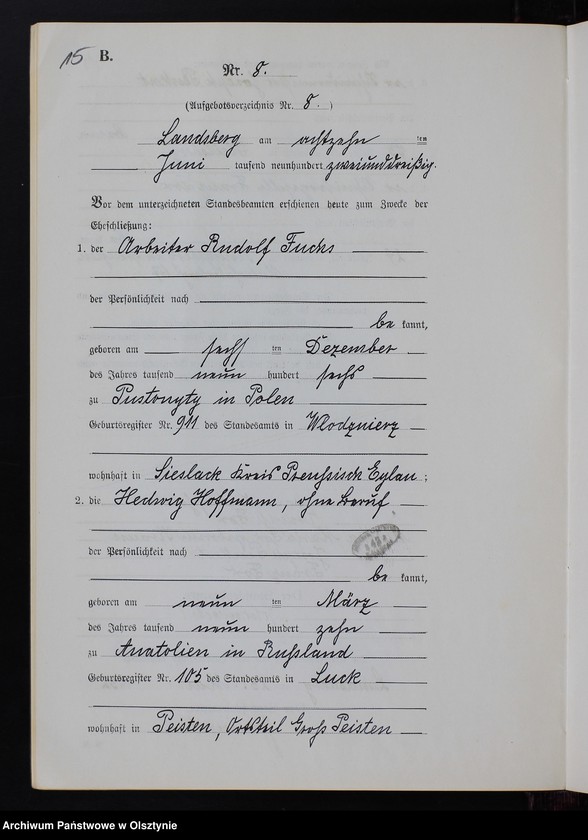 15 B.
Nr. 8.
(Aufgebotsverzeichnis Nr. 8.)
Landsberg am achtzehn ten
Juni tausend neunhundert zweiunddreißig.
Vor dem unterzeichneten Standesbeamten erschienen heute zum Zwecke der
Eheschließung:
1. der Arbeiter Rudolf Fuchs
der Persönlichkeit nach
be kannt,
geboren am sechs ten Dezember
des Jahres tausend neun hundert sechs
zu Pustonyty in Polen
Geburtsregister Nr. 911 des Standesamts in Wlodznierz
wohnhaft in Sieslack Kreis Preußisch Eylau;
2. die Hedwig Hoffmann, ohne Beruf
der Persönlichkeit nach
be kannt,
geboren am neun ten März
des Jahres tausend neun hundert zehn
zu Anatolien in Rußland
Geburtsregister Nr. 105 des Standesamts in Luck
wohnhaft in Peisten, Ortsteil Groß Peisten
Archiwum Państwowe w Olsztynie